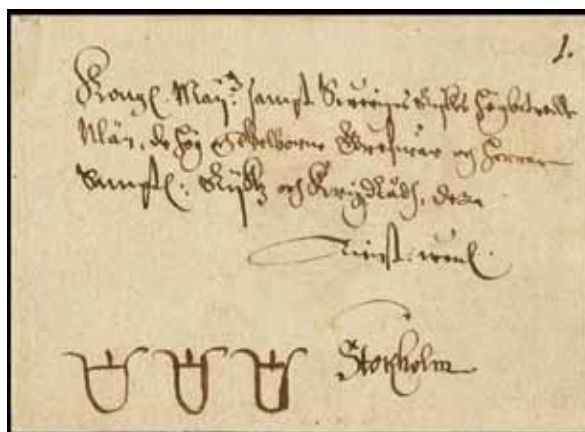 1.
Kongl. May:tt sampt Sweriges Rijkes högbetrodde
Män, de hög Edelborne Grefwar och Herrar
Samptl: Rijkz och Krigz Rådh, dess
Stokholm